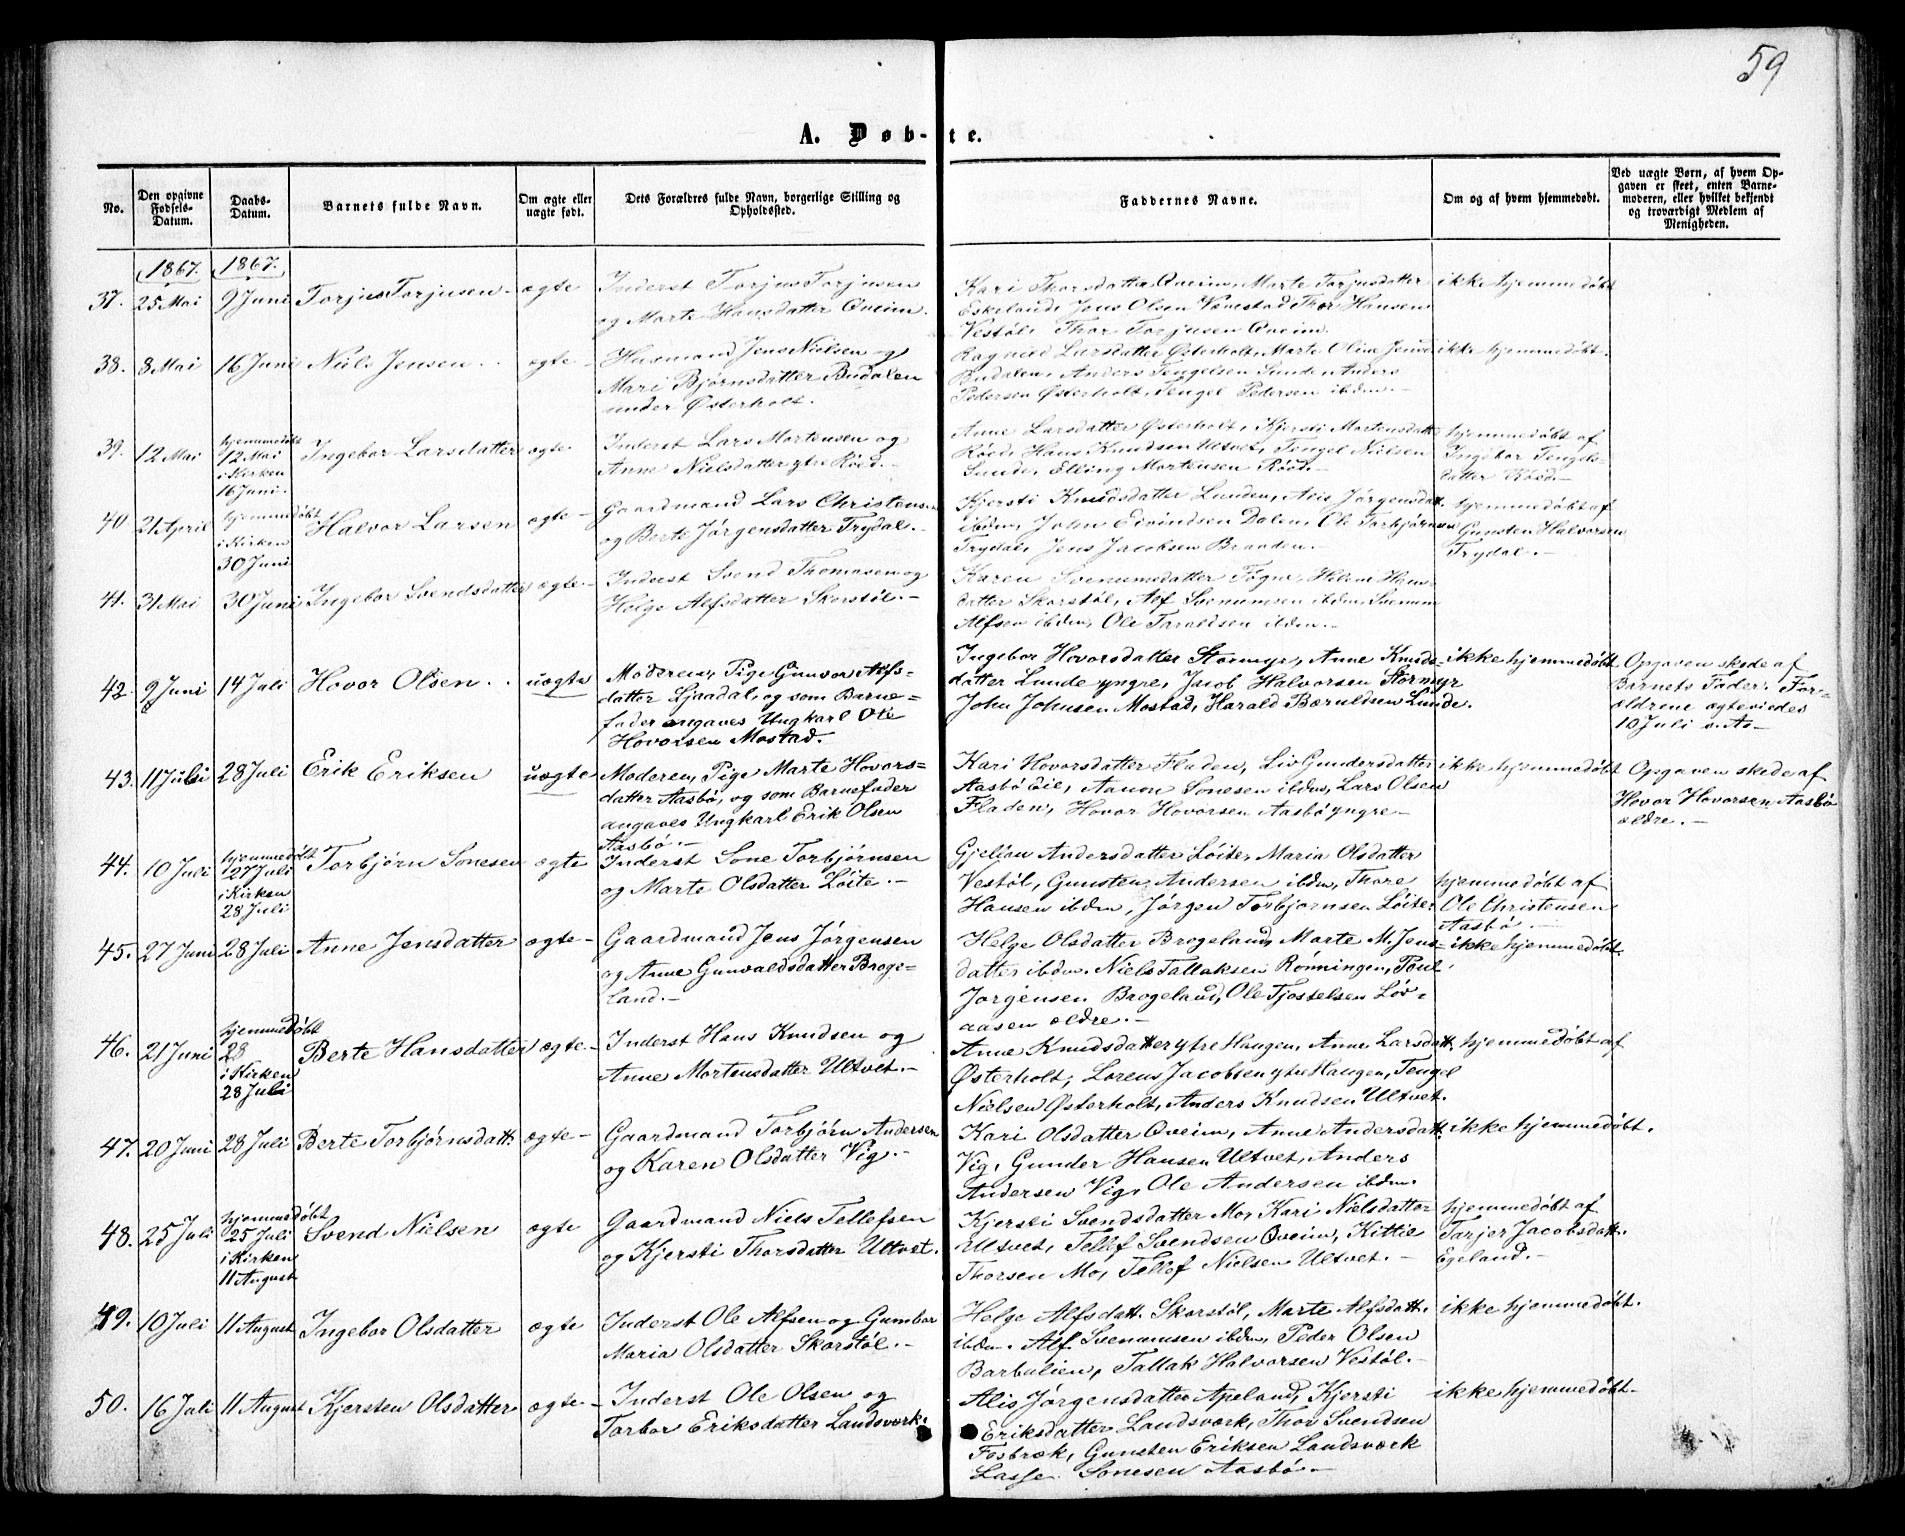 59
A. Døb- te.
No.
Den opgivne Fødsels-Datum.
Daabs-Datum.
Barnets fulde Navn.
Om ægte eller uægte født.
Dets Forældres fulde Navn, borgerlige Stilling og Opholdssted.
Faddernes Navne.
Om og af hvem hjemmedøbt.
Ved uægte Børn, af hvem Opgaven er skeet, enten Barnemoderen, eller hvilket bekjendt og troværdigt Medlem af Menigheden.
1867. 1867.
37. 25 Mai 9 Juni Torjus Torjusen ægte
Inderst Torjus Torjusen
og Marte Hansdatter Qveim.
Kari Thorsdatter Qveim, Marte Torjusdatter
Eskeland, Jens Olsen Vaavestad Thor Hansen
Vestøl, Thor Torjusen Qveim.
ikke hjemmedøbt
38. 8 Mai 16 Juni Niels Jensen ægte
Husmand Jens Nielsen og
Mari Bjørnsdatter Budalen
under Østerholt.
Ragnild Larsdatter Østerholt, Marte Oline Jensd
Budalen, Anders Tengelsen Lunde, Anders
Pedersen Østerholt, Tengel Pedersen ibdm.
ikke hjemmedøbt.
39. 12 Mai
hjemmedøbt
12 Mai
i Kirken
16 Juni.
Ingebor Larsdatter ægte
Inderst Lars Mortensen og
Anne Nielsdatter ytre Röed.
Anne Larsdatter Østerholt, Kjersti Mortensdatt
Röed, Hans Knudsen Ultvet, Tengel Nielsen
Lunde, Elling Mortensen Röod.
hjemmedøbt af
Ingebor Tengels-
datter Röed.
40. 21 April
hjemmedøbt
i Kirken
30 Juni
Halvor Larsen ægte
Gaardmand Lars Christensen
og Berte Jørgensdatter Trydal.
Kjersti Knudsdatter Lunden, Avis Jørgensdatt.
ibdm, John Eivindsen Dalen, Ole Torbjørnsen
Trydal, Jens Jacobsen Braaden.
hjemmedøbt af
Gunsten Halvorsen
Trydal.
41. 31 Mai 30 Juni Ingebor Svendsdatter ægte
Inderst Svend Thomasen og
Helge Alfsdatter Skorstøl.
Karen Svenumsdatter Fogne, Helene Hans-
datter Skorstøl, Alf Svenumsen ibdm, Svenum
Alfsen ibdm, Ole Taraldsen ibdm.
42. 9 Juni 14 Juli Hovor Olsen uægte
Moderen, Pige Gunvor Alfs-
datter Ljaadal, og som Barne-
fader angaves Ungkarl Ole
Hovorsen Mostad.
Ingebor Hovorsdatter Stormyr, Anne Knuds-
datter Lunde yngre, Jacob Halvorsen Stormyr
John Johnsen Mostad, Harald Bæruldsen Lunde.
ikke hjemmedøbt
Opgaven skede af
Barnets Fader. For-
ældrene ægteviedes
10 Juli
43. 11 Juli 28 Juli Erik Eriksen uægte
Moderen, Pige Marte Hovors-
datter Aasbø, og som Barnefader
angaves Ungkarl Erik Olsen
Aasbø.
Kari Hovorsdatter Fladen, Liv Gundersdatter
Aasbø Eie, Aanon Sonesen ibdm, Lars Olsen
Fladen, Hovor Hovorsen Aasbø yngre
ikke hjemmedøbt
Opgaven skede af
Hovor Hovorsen Aasbø
ældre.
44. 10 Juli
hjemmedøbt
27 Juli
i Kirken
28 Juli
Torbjørn Sonesen ægte
Inderst Sone Torbjørnsen
og Marte Olsdatter Løite.
Gjellau Andersdatter Løite, Maria Olsdatter
Vestøl, Gunsten Andersen ibdm, Thore
Hansen ibdm, Jørgen Torbjørnsen Løite.
hjemmedøbt af
Ole Christensen
Aasbø.
45. 27 Juni 28 Juli Anne Jensdatter ægte
Gaardmand Jens Jørgensen
og Anne Gunvaldsdatter Broge-
land.
Helge Olsdatter Brogeland, Marte M. Jens-
datter ibdm. Niels Tallaksen Rønningen, Poul
Jørgensen Brogeland, Ole Tjostelsen Løv-
aasen ældre.
ikke hjemmedøbt
46. 21 Juni
hjemmedøbt
28
i Kirken
28 Juli
Berte Hansdatter ægte
Inderst Hans Knudsen og
Anne Mortensdatter Ultvet.
Anne Knudsdatter ytre Haugen, Anne Larsdatt.
Østerholt, Lorens Jacobsen ytre Haugen, Tengel
Nielsen Østerholt, Anders Knudsen Ultvet.
hjemmedøbt af
47. 20 Juni 28 Juli Berte Torbjørnsdatt. ægte
Gaardmand Torbjørn Andersen
og Karen Olsdatter Vig.
Kari Olsdatter Qveim, Anne Andersdatt.
Vig, Gunder Hansen Ultvet, Anders
Andersen Vig, Ole Andersen ibdm.
ikke hjemmedøbt.
48. 25 Juli
hjemmedøbt
25 Juli
i Kirken
11 August
Svend Nielsen ægte
Gaardmand Niels Tellefsen
og Kjersti Thorsdatter Ultvet.
Kjersti Svendsdatter Mo, Kari Nielsdatter
Ultvet, Tellef Svendsen Qveim, Kittie
Thorsen Mo, Tellef Nielsen Ultvet.
hjemmedøbt af
Tarjer Jacobsdatt.
Egeland.
49. 10 Juli 11 August Ingebor Olsdatter ægte
Inderst Ole Alfsen og Gumbor
Maria Olsdatter Skorstøl.
Helge Alfsdatt. Skorstøl, Marte Alfsdatt.
ibdm. Alf Svenumsen ibdm, Peder Olsen
Barbulien, Tallak Halvorsen Vestøl.
ikke hjemmedøbt.
50. 16 Juli 11 August Kjersten Olsdatter ægte
Inderst Ole Olsen og
Torbor Eriksdatter Landsværk.
Alis Jørgensdatter Apeland, Kjersti
Eriksdatter Landsværk, Thor Svendsen
Fosbræk, Gunsten Eriksen Landsværk
Lasse Sonesen Aasbø
ikke hjemmedøbt